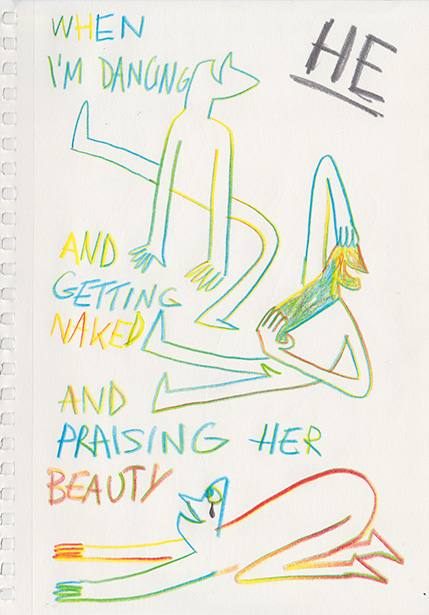 WHEN
I'M DANCING
HE
AND
GETTING
NAKED
AND
PRAISING HER
BEAUTY